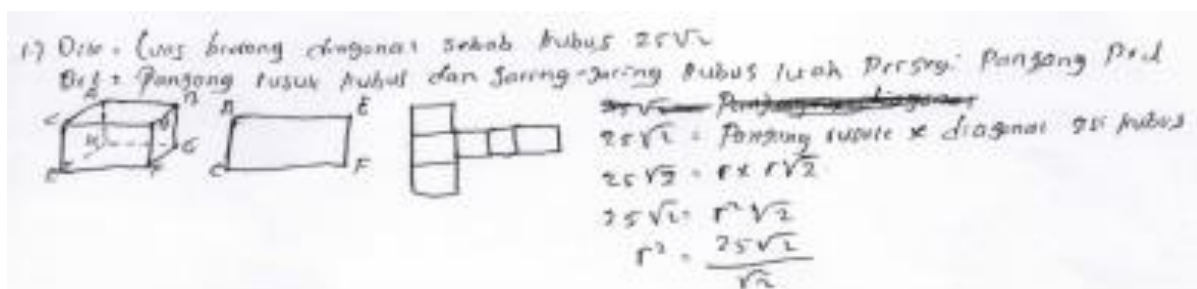 1.) Dik = Luas bidang diagonal sebab kubus 25√2
Dit = Panjang rusuk kubus dan jaring-jaring kubus luah Persegi Panjang
25√2 = Panjang rusuk x diagonal sisi kubus
25√2 = r x r√2
25√2 = r² √2
r² = 25√2
√2
A
E
C
F